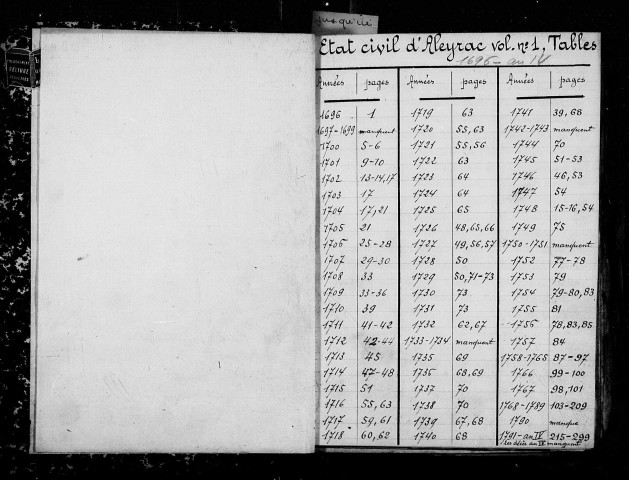 jusqu'ici
Etat civil d'Aleyrac vol. n° 1, Tables
1696 - an IV
Années pages Années pages Années pages
1696 1 1719 63 1741 39, 68
1697-1699 manquent 1720 55, 63 1742-1743 manquent
1700 5-6 1721 55, 56 1744 70
1701 9-10 1722 63 1745 51-53
1702 13-14, 17 1723 64 1746 46, 53
1703 17 1724 64 1747 54
1704 17, 21 1725 65 1748 15-16, 54
1705 21 1726 48, 65, 66 1749 75
1706 25-28 1727 49, 56, 57 1750-1751 manquent
1707 29-30 1728 50 1752 77-78
1708 33 1729 50, 71-73 1753 79
1709 33-36 1730 73 1754 79-80, 83
1710 39 1731 73 1755 81
1711 41-42 1732 62, 67 1756 78, 83, 85
1712 42-44 1733-1734 manquent 1757 84
1713 45 1735 69 1758-1765 87-97
1714 47-48 1736 68, 69 1766 99-100
1715 51 1737 70 1767 98, 101
1716 55, 63 1738 70 1768-1789 103-209
1717 59, 61 1739 67, 68 1790 manque
1718 60, 62 1740 68 1791-an IV 215-299
les décès an IV manquent